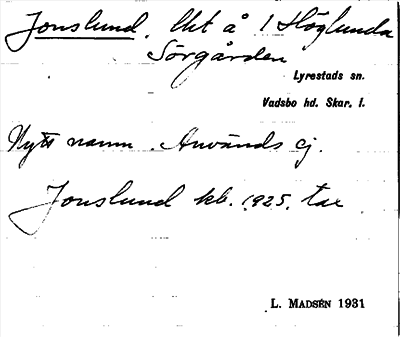 Jonslund. lht å 1 Höglunda
Sörgården
Lyrestads sn.
Vadsbo hd. Skar. l.
Nytt namn. Används ej.
Jonslund kb. 1925. tax
L. MADSÉN 1931